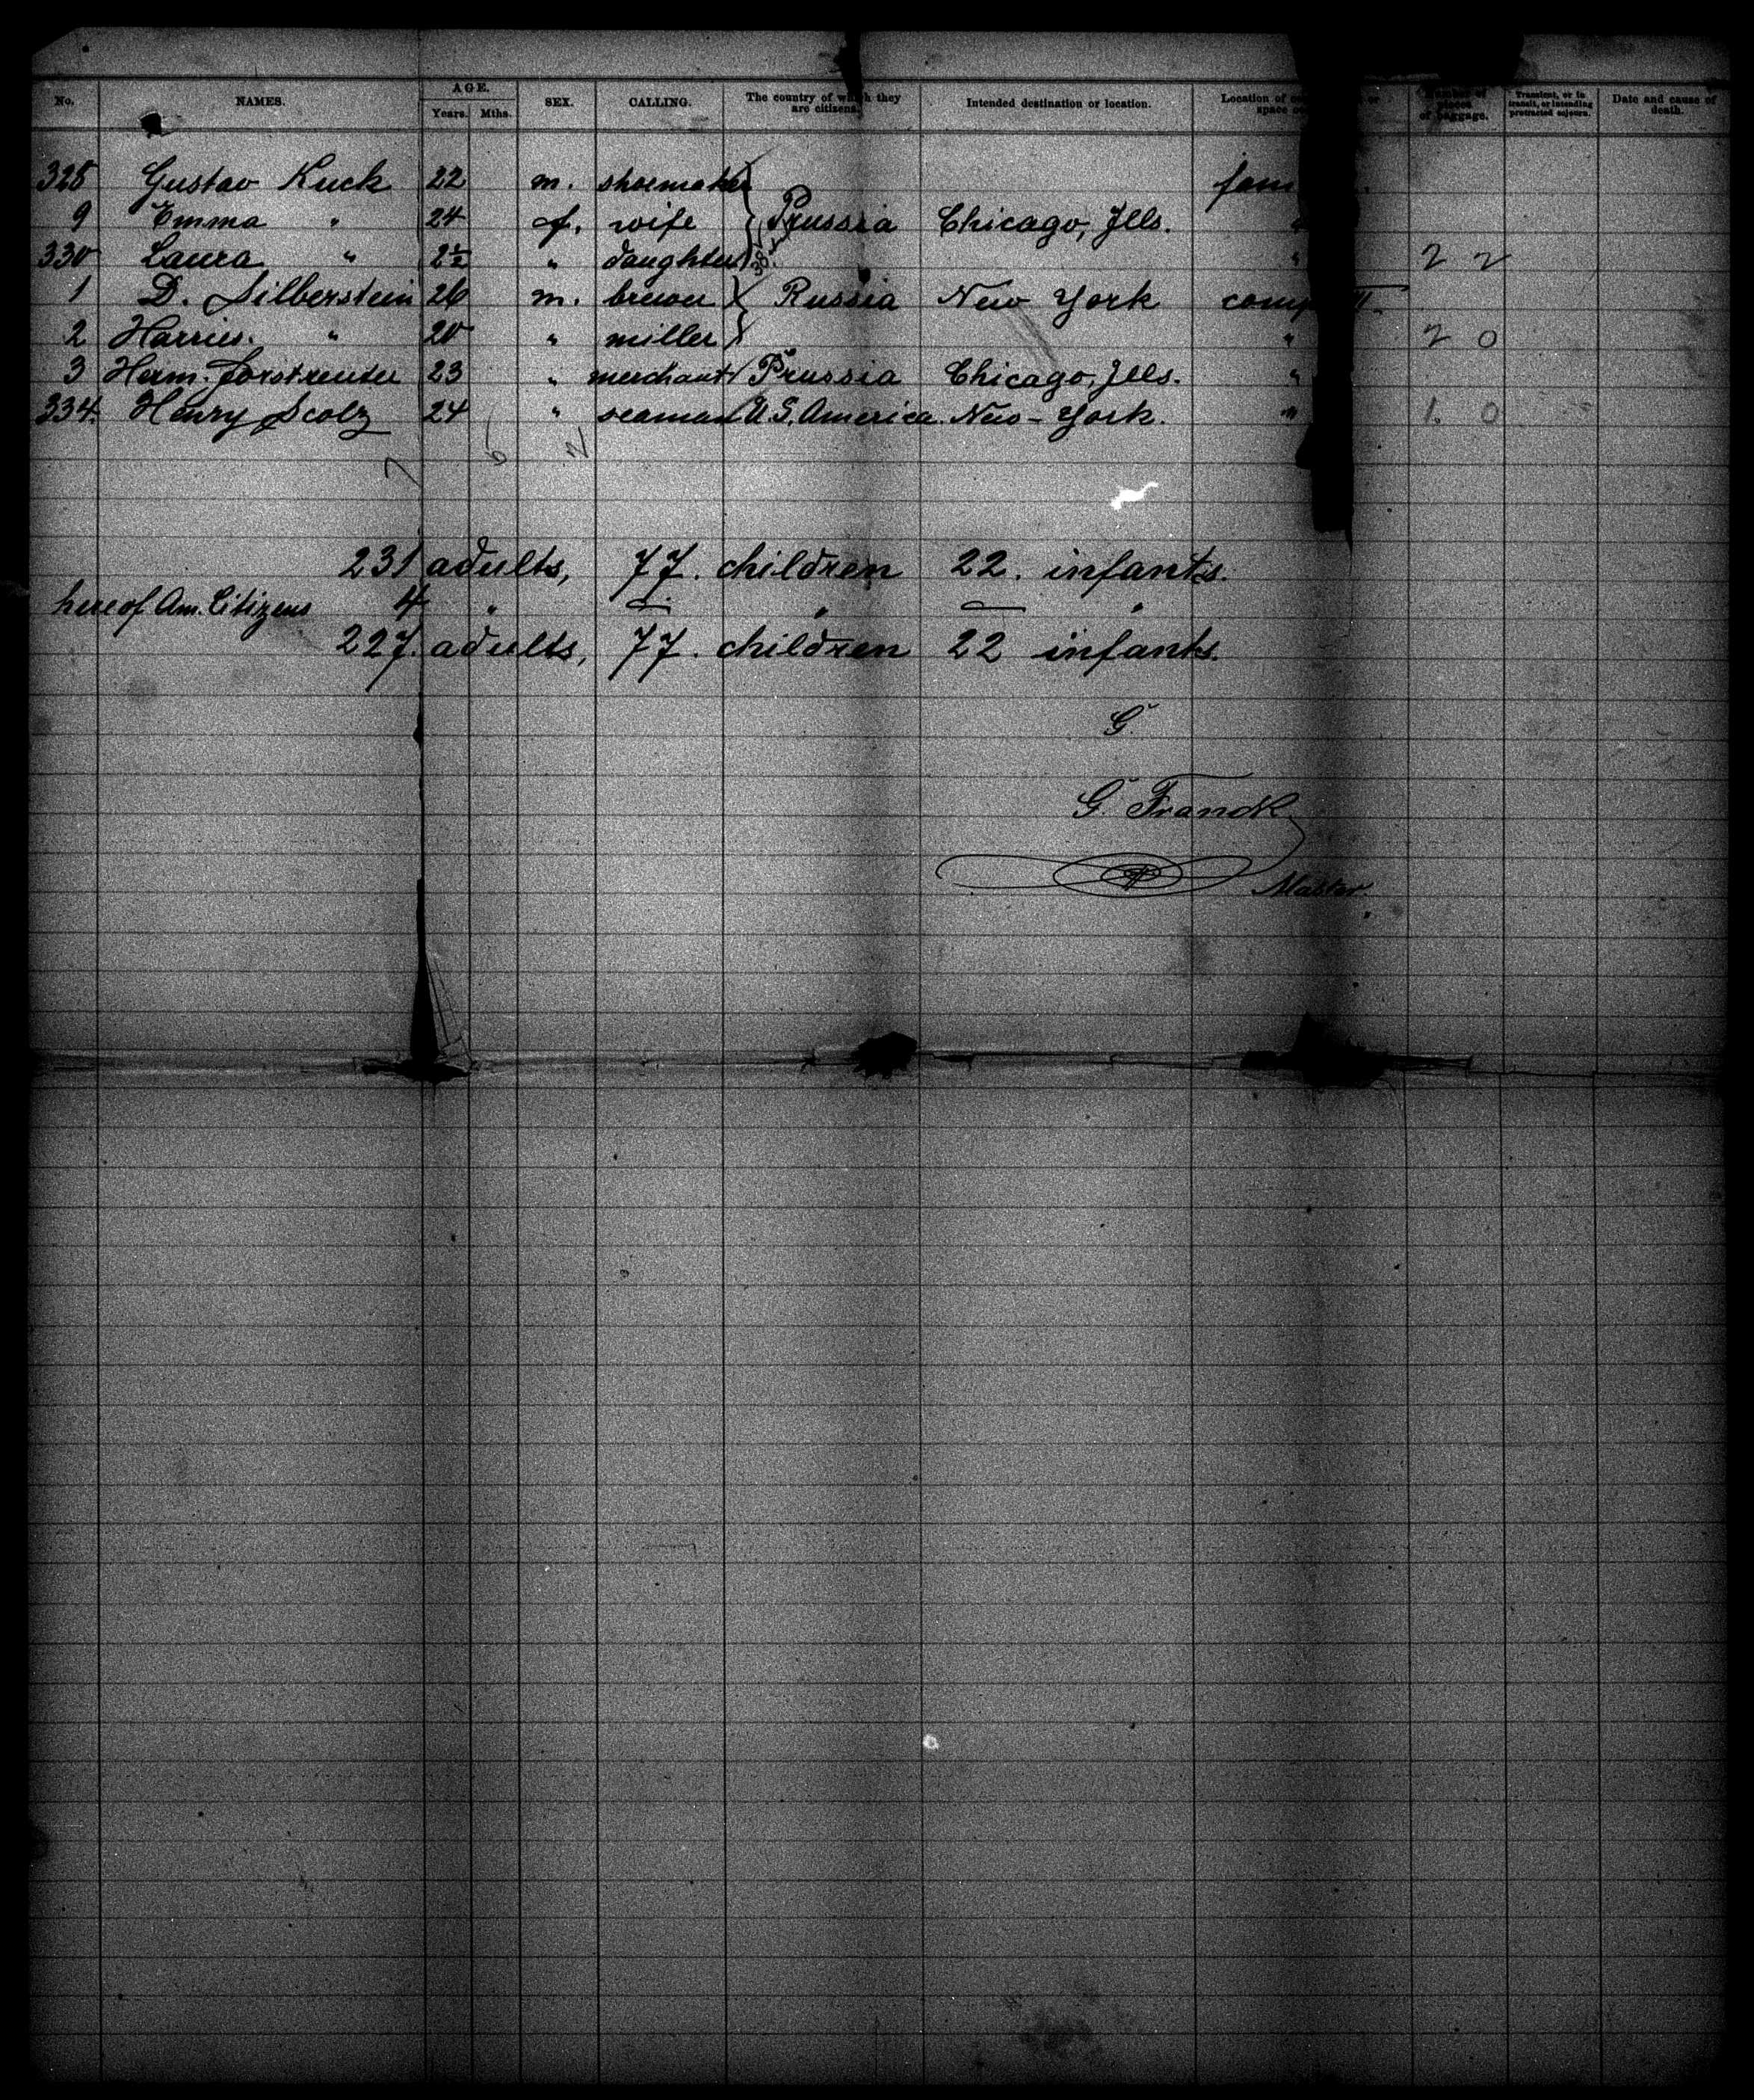 No. NAMES. AGE. Years. Mths. SEX. CALLING. The country of which they are citizens. Intended destination or location. Location of space Number of pieces of baggage. Transient, or in transit, or intending protracted sojourn. Date and cause of death.
328 Gustav Kuck 22 m. shoemaker
9 Emma " 24 f. wife Prussia Chicago, Jlls.
330 Laura " 2½ " daughter " 2 2
1 D. Silberstein 26 m. brewer Russia New York comp II
2 Harries. " 20 " miller " 2 0
3 Herm. Forstreuter 23 " merchant Prussia Chicago, Jlls. "
334. Henry Scolz 24 " seaman U. S. America. New-York. " 1. 0
231 adults, 77. children 22. infants.
here of Am. Citizens 4 " — " — "
227. adults, 77. children 22 infants.
G.
G. Franck
Master.